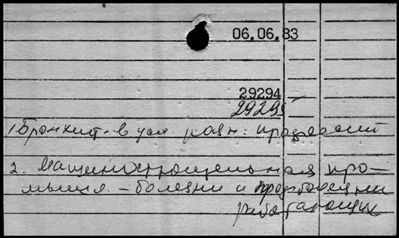 06.06.83
29294
29295
1. Бронхит - в усл. разн. профессий
2. Машиностроительная про-
мышл. - болезни и профболезни
работающих